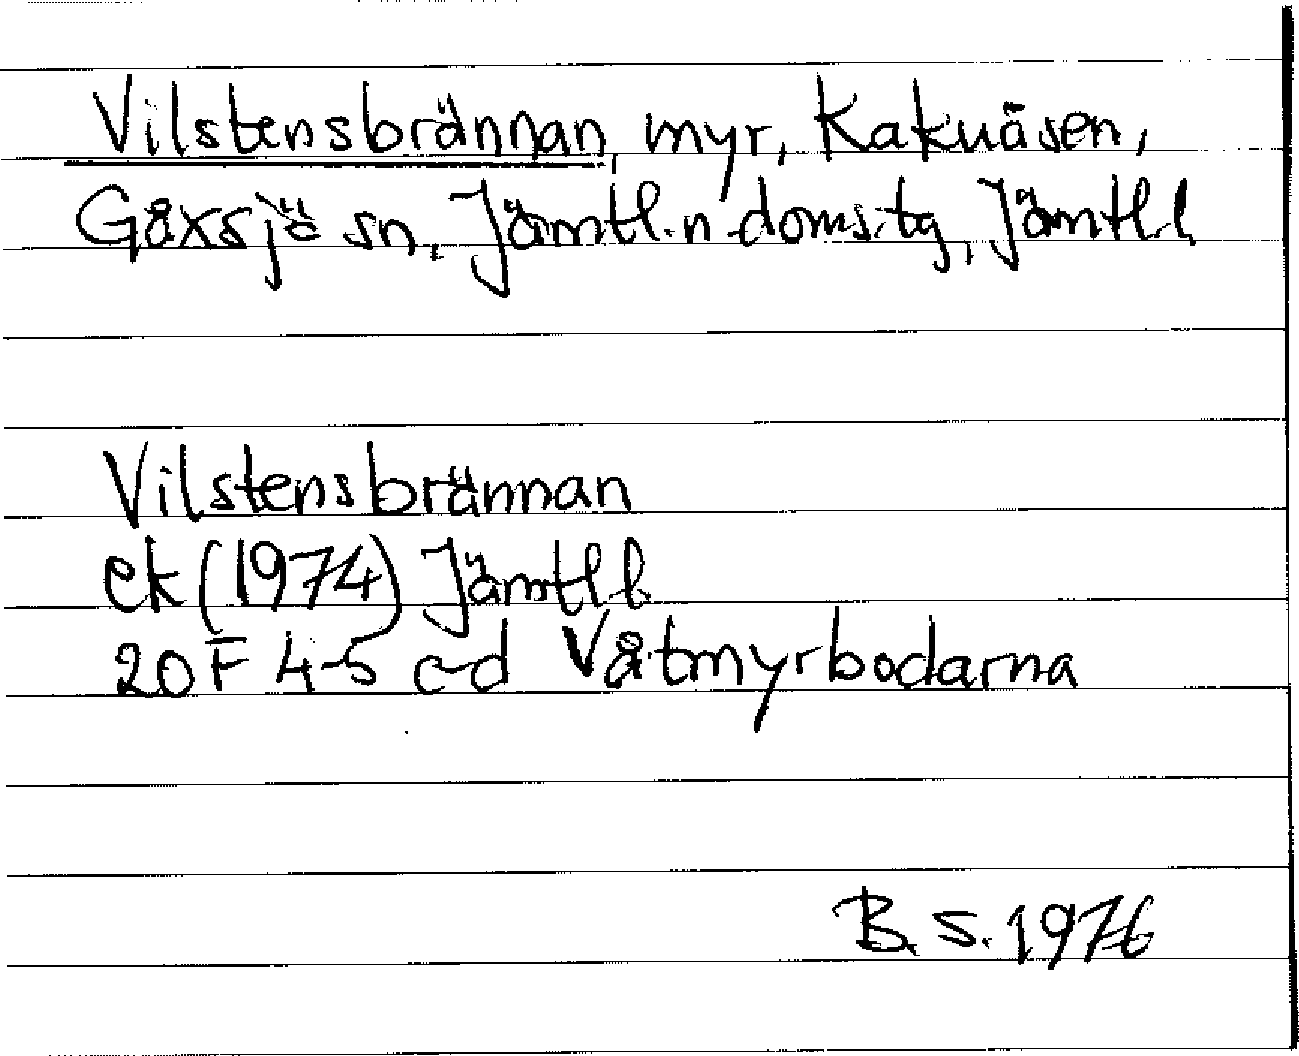 Vilstensbrännan, myr, Kakuåsen,
Gåxsjö sn, Jämtl.n.doms.tg, Jämtl.l
Vilstensbrännan
ek (1974) Jämtl l.
20 F 4-5 c-d Våtmyrbodarna
B.S. 1976